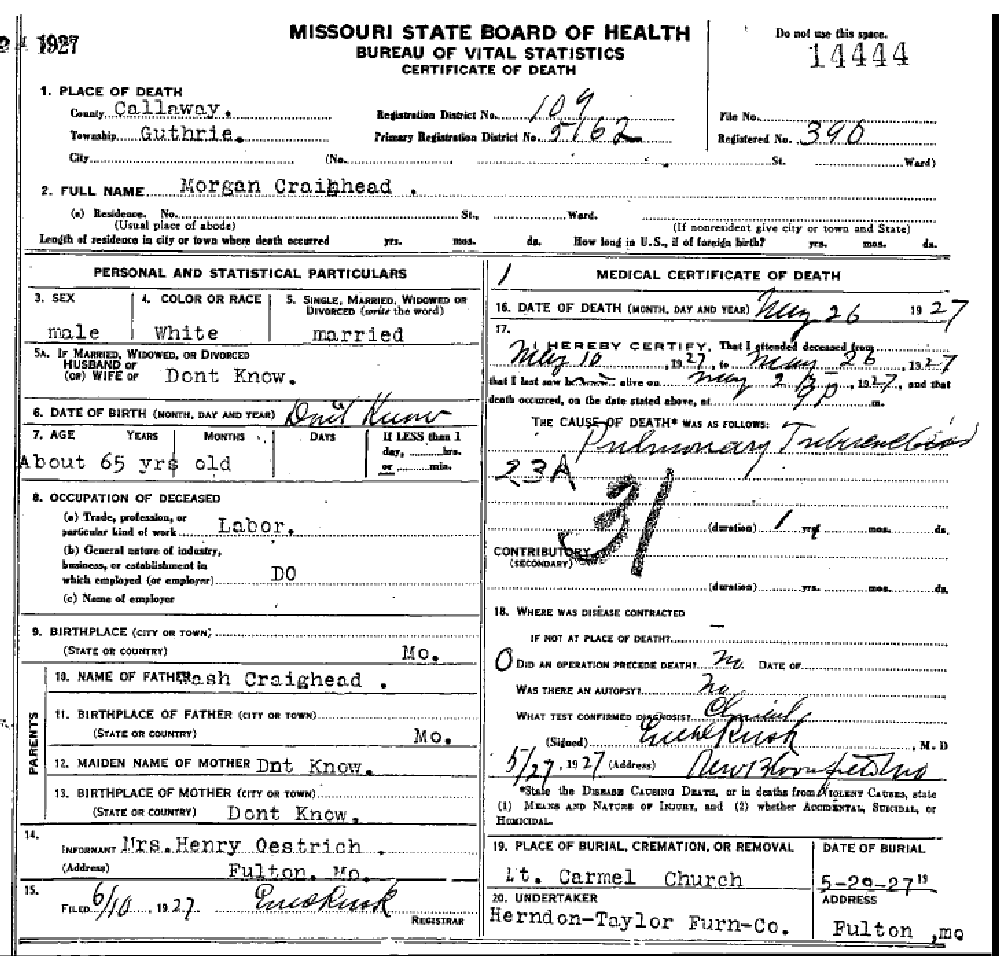 1927
MISSOURI STATE BOARD OF HEALTH
BUREAU OF VITAL STATISTICS
CERTIFICATE OF DEATH
Do not use this space.
14444
1. PLACE OF DEATH
County Callaway. Registration District No. 109 File No.
Township Guthrie. Primary Registration District No. 5162 Registered No. 390
City (No. St. Ward)
2. FULL NAME Morgan Craighead .
(a) Residence. No. St., Ward.
(Usual place of abode) (If nonresident give city or town and State)
Length of residence in city or town where death occurred yrs. mos. ds. How long in U.S., if of foreign birth? yrs. mos. ds.
PERSONAL AND STATISTICAL PARTICULARS
3. SEX 4. COLOR OR RACE 5. SINGLE, MARRIED, WIDOWED OR
DIVORCED (write the word)
male White married
5A. IF MARRIED, WIDOWED, OR DIVORCED
HUSBAND OF
(OR) WIFE OF Dont Know.
6. DATE OF BIRTH (MONTH, DAY AND YEAR) Dont Know
7. AGE YEARS MONTHS DAYS If LESS than 1
day, hrs.
or min.
About 65 yrs old
8. OCCUPATION OF DECEASED
(a) Trade, profession, or
particular kind of work Labor.
(b) General nature of industry,
business, or establishment in
which employed (or employer) DO
(c) Name of employer
9. BIRTHPLACE (CITY OR TOWN)
(STATE OR COUNTRY) Mo.
PARENTS
10. NAME OF FATHER Wash Craighead .
11. BIRTHPLACE OF FATHER (CITY OR TOWN)
(STATE OR COUNTRY) Mo.
12. MAIDEN NAME OF MOTHER Dnt Know.
13. BIRTHPLACE OF MOTHER (CITY OR TOWN)
(STATE OR COUNTRY) Dont Know.
14.
INFORMANT Mrs.Henry Oestrich .
(Address) Fulton. Mo.
15.
FILED 6/10, 1927
REGISTRAR
1 MEDICAL CERTIFICATE OF DEATH
16. DATE OF DEATH (MONTH, DAY AND YEAR) May 26 1927
17.
I HEREBY CERTIFY, That I attended deceased from
May 10, 1927, to May 26, 1927
that I last saw h alive on May 2, 1927, and that
death occurred, on the date stated above, at 9p m.
THE CAUSE OF DEATH* WAS AS FOLLOWS:
Pulmonary Tuberculosis
23A
31
(duration) 1 yrs. mos. ds.
CONTRIBUTORY
(SECONDARY)
(duration) yrs. mos. ds.
18. WHERE WAS DISEASE CONTRACTED
IF NOT AT PLACE OF DEATH?
0 DID AN OPERATION PRECEDE DEATH? No DATE OF
WAS THERE AN AUTOPSY? No
WHAT TEST CONFIRMED DIAGNOSIS? Clinical
(Signed) , M.D
5/27, 1927 (Address) New Bloomfield Mo
*State the DISEASE CAUSING DEATH, or in deaths from VIOLENT CAUSES, state
(1) MEANS AND NATURE OF INJURY, and (2) whether ACCIDENTAL, SUICIDAL, or
HOMICIDAL.
19. PLACE OF BURIAL, CREMATION, OR REMOVAL DATE OF BURIAL
Mt. Carmel Church 5-29-27 19
20. UNDERTAKER ADDRESS
Herndon-Taylor Furn-Co. Fulton ,mo